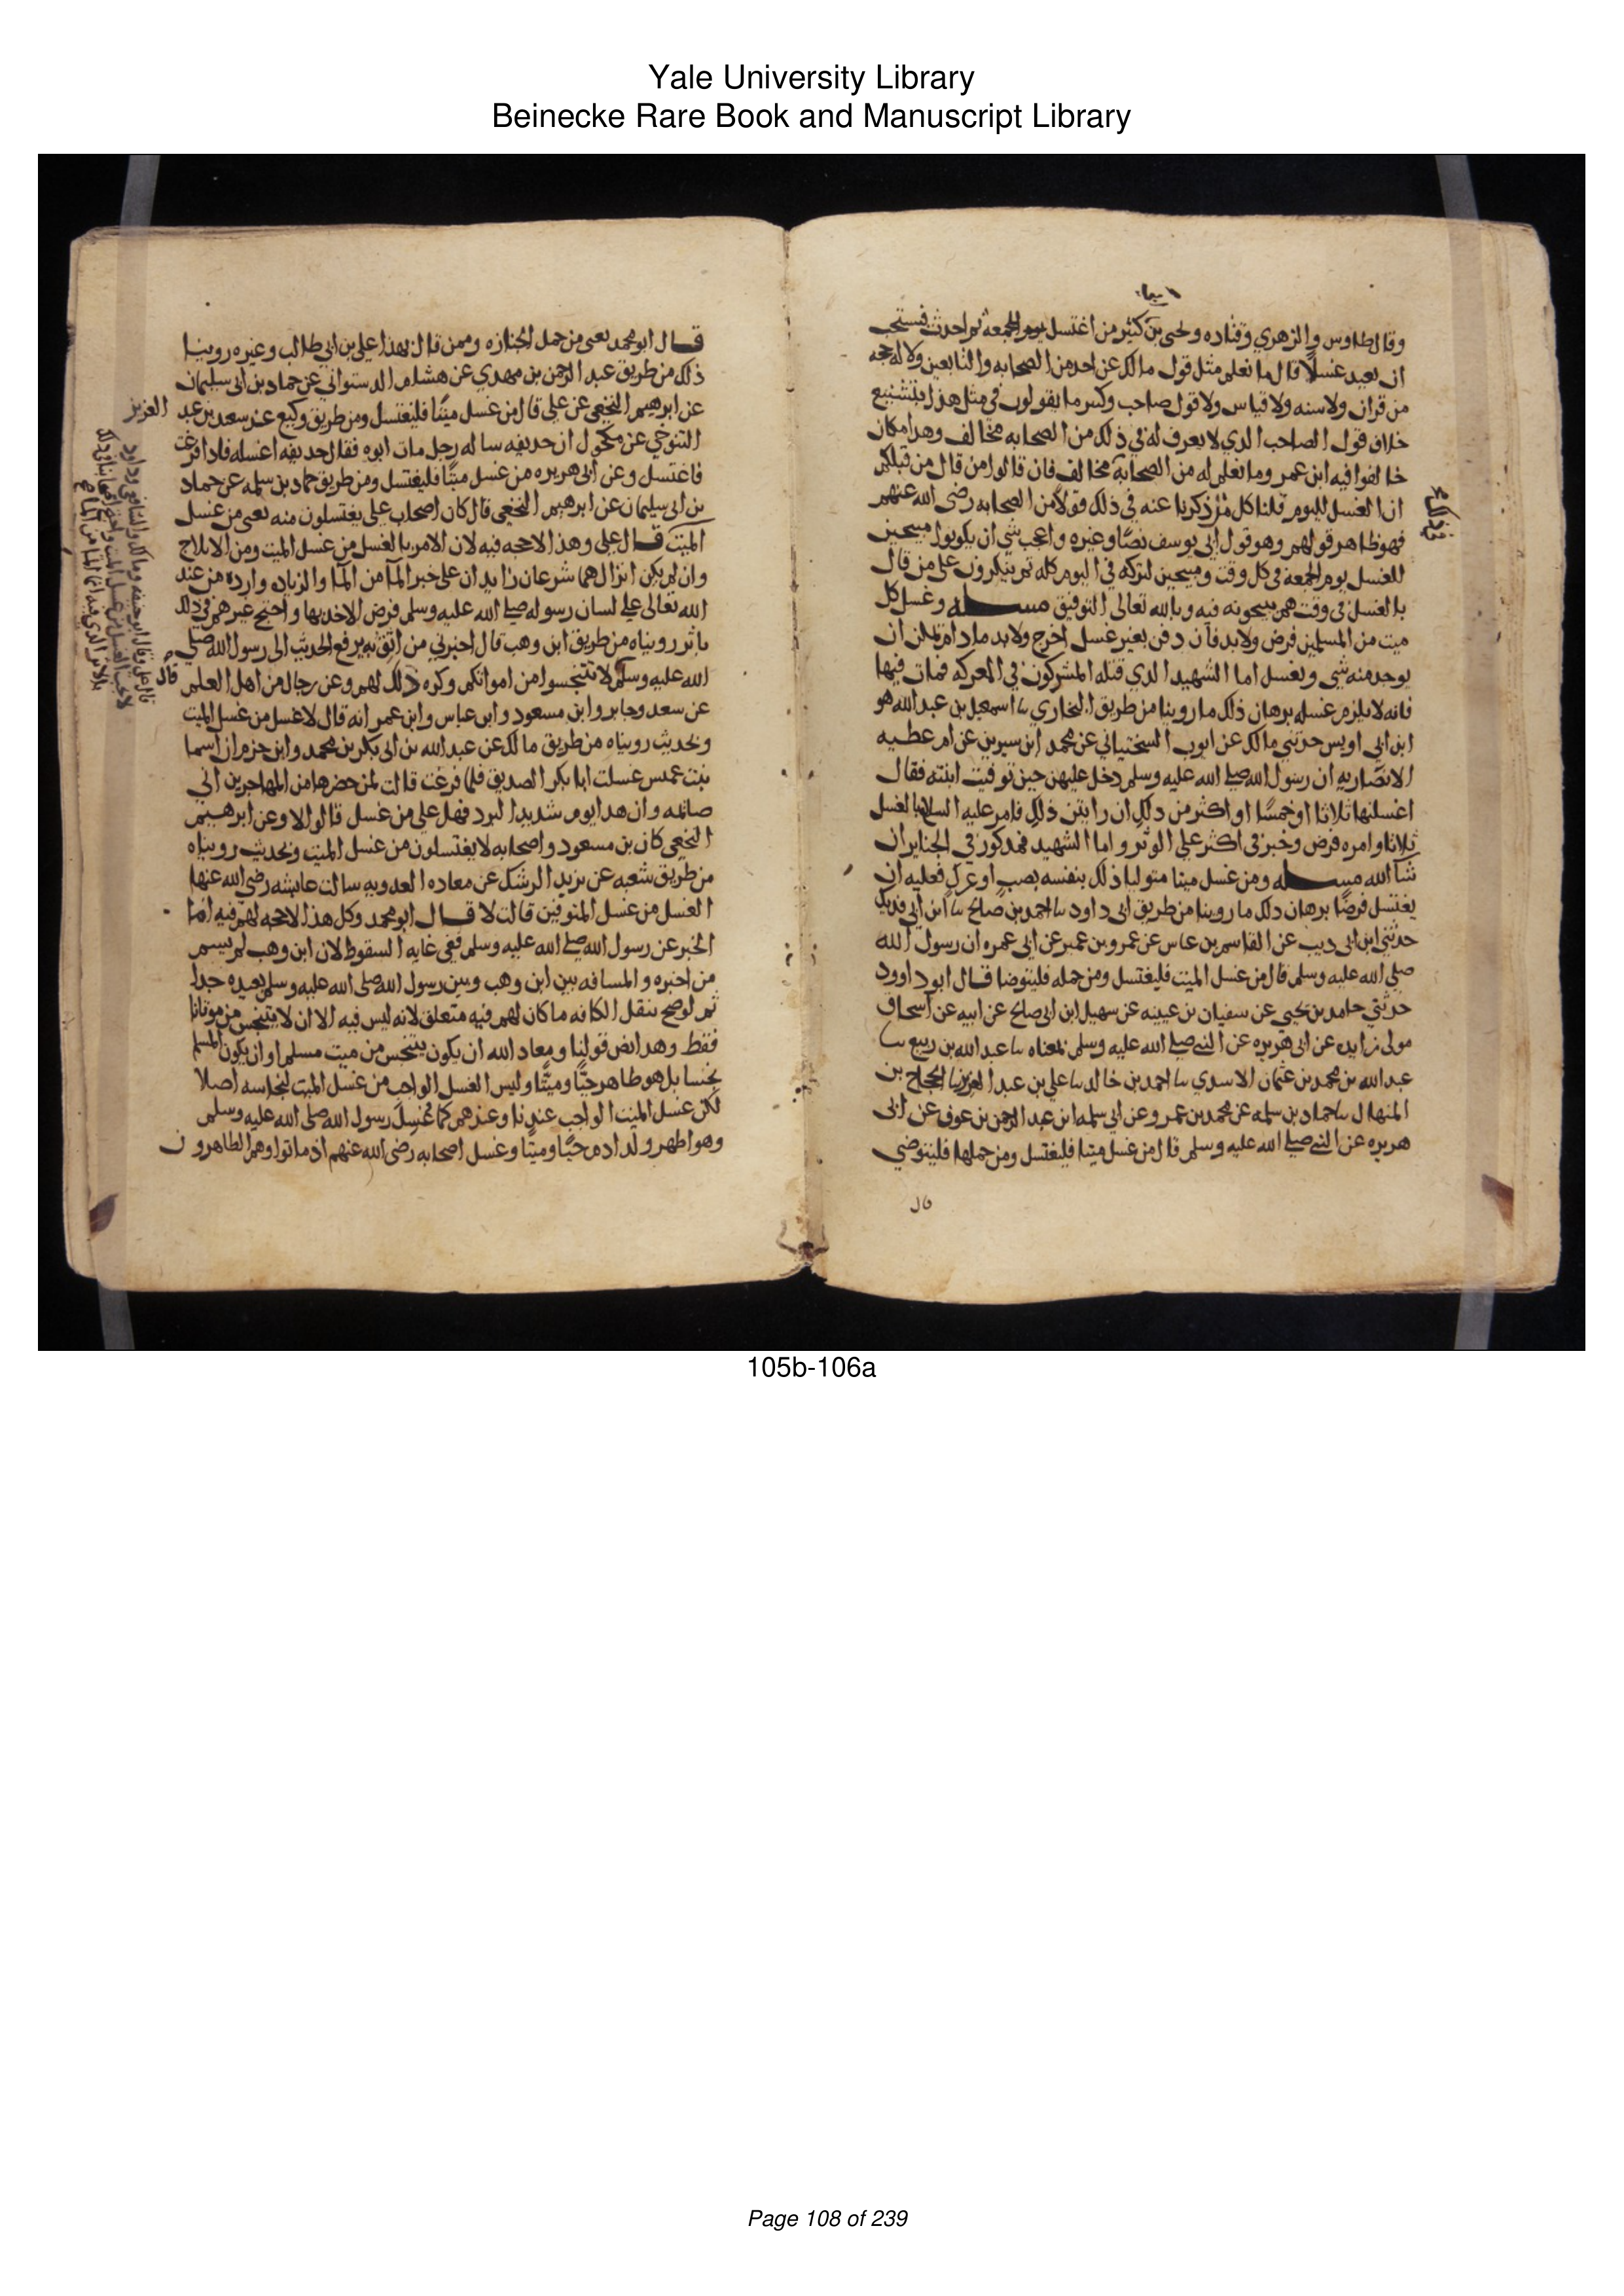 Yale University Library
Beinecke Rare Book and Manuscript Library
وقال طاوس والزهري وقتاده ويحيى بن كثير من اغتسل يوم الجمعة ثم احدث فيستحب
ان يعيد غسلا قال ما نعلم مثل قول مالك عن احد من الصحابه والتابعين ولا له حجه
من قران ولا سنه ولا قياس ولا قول صاحب وكثيرا ما يقولون في مثل هذا بتشنيع
خلاف قول الصاحب الذي لا يعرف له في ذلك من الصحابه مخالف وهذا مكان
خالفوا فيه ابن عمر وما نعلم له من الصحابة مخالف فان قالوا من قال من قبلكم
ان الغسل لليوم قلنا كل من ذكرنا عنه في ذلك قولا من الصحابه رضى الله عنهم
فهو ظاهر قولهم وهو قول ابي يوسف نصا وغيره واعجب شي ان يكونوا مبيحين
للغسل يوم الجمعة في كل وقت ومبيحين لتركه في اليوم كله ثم ينكرون على من قال
بالغسل في وقت هم يبيحونه فيه وبالله تعالى التوفيق مسله وغسل كل
ميت من المسلمين فرض ولابد فان دفن بغير غسل اخرج ولابد مادام يمكن ان
يوجد منه شي ويغسل اما الشهيد الذي قتله المشركون في المعركه فمات فيها
فانه لا يلزم غسله برهان ذلك ما روينا من طريق البخاري نا اسمعيل بن عبد الله هو
ابن ابي اويس حدثني مالك عن ايوب السختياني عن محمد ابن سيرين عن ام عطيه
الانصاريه ان رسول الله صلى الله عليه وسلم دخل عليهن حين توفيت ابنته فقال
اغسلنها ثلاثا او خمسا او اكثر من ذلك ان رايتن ذلك فامر عليه السلام بالغسل
ثلاثا وامره فرض وخير في اكثر على الوتر واما الشهيد فمذكور في الجنايز ان
شا الله مسله ومن غسل ميتا متوليا ذلك بنفسه بصب او عرك فعليه ان
يغتسل فرضا برهان ذلك ما روينا من طريق ابي داود نا احمد بن صالح نا ابن ابي فديك
حدثني ابن ابي ذيب عن القاسم بن عاس عن عمرو بن عمير عن ابي هريره ان رسول الله
صلى الله عليه وسلم قال من غسل الميت فليغتسل ومن حمله فليتوضا قال ابو داوود
حدثني حامد بن يحيى عن سفيان بن عيينه عن سهيل ابن ابي صالح عن ابيه عن اسحاق
مولى زايده عن ابي هريره عن النبي صلى الله عليه وسلم بمعناه نا عبد الله بن ربيع نا
عبد الله بن محمد بن عثمان الاسدي نا احمد بن خالد نا علي بن عبد العزيز نا الحجاج بن
المنهال نا حماد بن سلمه عن محمد بن عمرو عن ابي سلمه ابن عبد الرحمن بن عوف عن ابي
هريره عن النبي صلى الله عليه وسلم قال من غسل ميتا فليغتسل ومن حملها فليتوضي
قال
قال ابو محمد يعني من حمل الجنازه وممن قال بهذا علي بن ابي طالب وغيره روينا
ذلك من طريق عبد الرحمن بن مهدي عن هشام الدستواني عن حماد بن ابي سليمان
عن ابرهيم النخعي عن علي قال من غسل ميتا فليغتسل ومن طريق وكيع عن سعد بن عبد
العزيز
التنوخي عن مكحول ان حذيفه ساله رجل مات ابوه فقال حذيفه اغسله فاذا فرغت
فاغتسل وعن ابي هريره من غسل ميتا فليغتسل ومن طريق حماد بن سلمه عن حماد
بن ابي سليمان عن ابرهيم النخعي قال كان اصحاب علي يغتسلون منه يعني من غسل
الميت قال علي وهذا لا حجه فيه لان الامر بالغسل من غسل الميت ومن الايلاج
وان لم يكن انزال هما شرعان زايدان على خبر الما من الما والزياده وارده من عند
الله تعالى على لسان رسوله صلى الله عليه وسلم فرض الاخذ بها واحتج غيرهم في ذلك
باثر رويناه من طريق ابن وهب قال اخبرني من اثق به يرفع الحديث الى رسول الله صلى
الله عليه وسلم لا تتنجسوا من امواتكم وكره ذلك لهم وعن رجال من اهل العلم
عن سعد وجابر وابن مسعود وابن عباس وابن عمر انه قال لا غسل من غسل الميت
وبحديث رويناه من طريق مالك عن عبد الله بن ابي بكر بن محمد وابن حزم ان اسما
بنت عميس غسلت ابا بكر الصديق فلما فرغت قالت لمن حضرها من المهاجرين اني
صائمه وان هذا يوم شديد البرد فهل علي من غسل قالوا لا وعن ابرهيم
النخعي كان بن مسعود واصحابه لا يغتسلون من غسل الميت وبحديث رويناه
من طريق شعبه عن يزيد الرشك عن معاده العدويه سالت عايشه رضى الله عنها
الغسل من غسل المتوفين قالت لا قال ابو محمد وكل هذا لا حجه لهم فيه اما
الخبر عن رسول الله صلى الله عليه وسلم ففي غايه السقوط لان ابن وهب لم يسم
من اخبره والمسافه بين ابن وهب وبين رسول الله صلى الله عليه وسلم بعيده جدا
ثم لو صح بنقل الكافه ما كان لهم فيه متعلق لانه ليس فيه الا ان لا يتنجس من موتانا
فقط وهذا نص قولنا ومعاذ الله ان يكون يتنجس من ميت مسلم او ان يكون المسلم
نجسا بل هو طاهر حيا وميتا وليس الغسل الواجب من غسل الميت لنجاسه اصلا
لكن غسل الميت الواجب عندنا وعندهم كما غسل رسول الله صلى الله عليه وسلم
وهو اطهر ولد ادم حيا وميتا وغسل اصحابه رضى الله عنهم اذ ماتوا وهم الطاهرون
105b-106a
Page 108 of 239